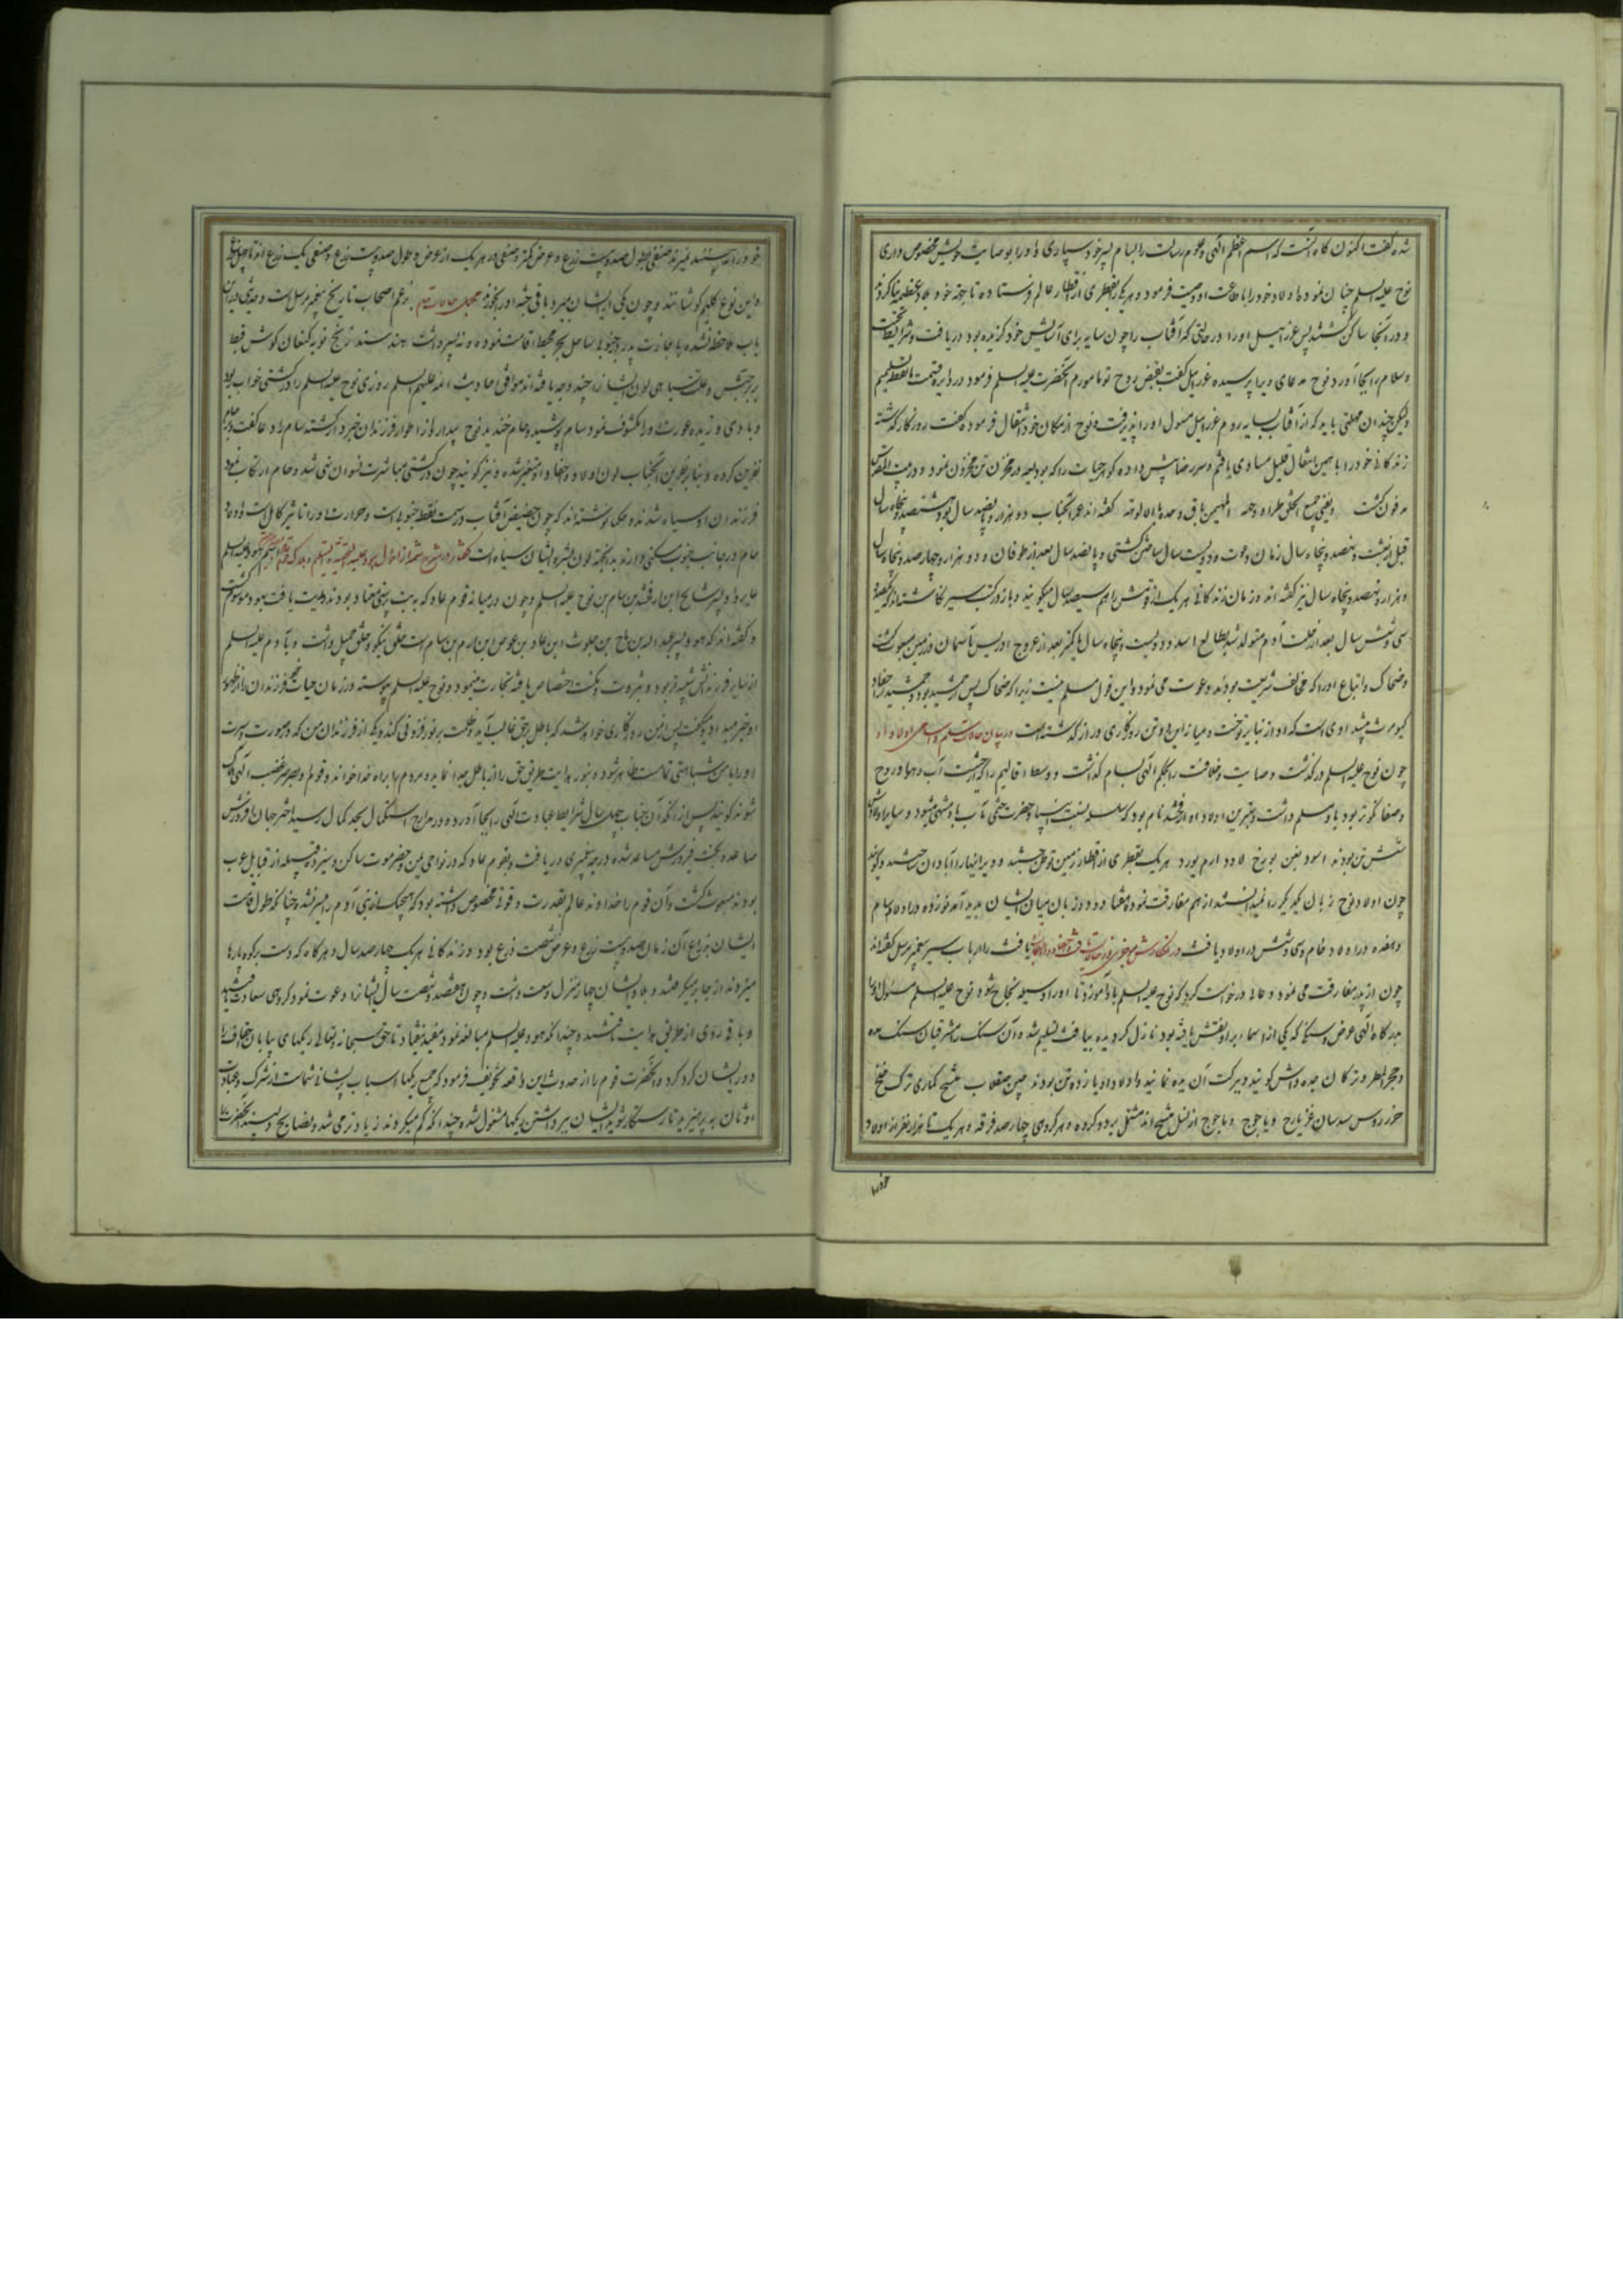 شده گفت اکنون گاه آنست که اسم اعظم الهی و علوم رسالت را بسام پسر خود سپاری و او را بوصایت خویش مخصوص داری
نوح علیه السلم چنان نمود و اولاد خود را باطاعت او وصیت فرمود و هر یک را بقطری از اقطار عالم فرستاده تا بجهة خود بلاد عظیمه بنا کردند
و در آنجا ساکن گشتند پس عزراییل او را در حالتی که از آفتاب را چون سایه برای آسایش خود گزیده بود دریافت و شرایط تحیت
و سلام بجا آورد نوح مدعای ویرا پرسیده عزراییل گفت بقبض روح تو مامورم آنحضرت علیه السلم فرمود
ولیکن چندان مهلتی باید که از آفتاب بسایه روم عزراییل مسول او را پذیرفت و نوح از مکان خود انتقال فرموده گفت روزگار گذشته
زندگانی خود را با همین انتقال قلیل مساوی یافتم و سر رضا پیش داده گوهر حیات را که بودیعه در مخزن تن مخزون نمود و در بیت المقدس
مدفون گشت گفته‌اند عمر آنجناب دو هزار و پانصد سال بود هشتصد و پنجاه سال
قبل از بعثت و نهصد و پنجاه سال زمان دعوت و دویست سال ساختن کشتی و پانصد سال بعد از طوفان و دو هزار و چهار صد و پنجاه سال
و هزار و نهصد و پنجاه سال نیز گفته اند و زمان زندگانی هر یک از امتش را هم سیصد سال میگویند و باز در کتب سیر نگاشته‌اند که
سی و شش سال بعد از رحلت آدم متولد شد بطالع اسد و دویست و پنجاه سال یا کمتر بعد از عروج ادریس بآسمان در زمین مبعوث گشت
و ضحاک و اتباع او را که مخالف شریعت بودند دعوت می نمود و این قول مسلم نیست زیرا که ضحاک پس از جمشید بود و جمشید
کیومرث پیشدادی است که او از تبار نوحست و میانه این دو تن روزگاری دراز گذشته است در بیان حالات سام و اسامی اولاد او
چون نوح علیه السلم درگذشت وصایت و خلافت را بحکم الهی بسام گذاشت و وسط اقالیم را که از حیثیت آب و هوا و روح
و صفا نکوتر بود با و مسلم داشت و بهترین اولاد او ارفخشد نام بود که سلسله نسبت انبیا و حضرت ختمی مآب باو منتهی میشود و سایر اولادش
شش تن بودند اسود یفن بورخ لاود ارم یورد هر یک بقطری از اقطار زمین توطن جستند و ویرانیها را آبادان ساختند و گویند
چون اولاد نوح زبان یکدیگر را نمیدانستند از هم مفارقت نمودند هفتاد و دو زبان میان ایشان پدید آمد نوزده در اولاد سام
و هفده در اولاد حام و سی و شش در اولاد یافث یافث را ارباب سیر پیغمبر مرسل گفته‌اند
چون از پدر مفارقت می نمود دعائی درخواست کرد که نوح علیه السلم باو آموزد تا او را وسیله نجاح شود نوح علیه السلم مسئول او را
بدرگاه الهی عرض و سنگی که یکی از اسماء بر او نقش یافته بود نازل گردیده بیافث تسلیم شد و آن سنگ را مشرقیان سنگ یده
و حجر المطر و ترکان جده داش گویند و ببرکت آن یده نمایند و اولاد او یازده تن بودند چین صقلاب منشج کماری ترک خلج
خزر روس سدسان غز یارج و یاجوج و ماجوج از نسل منشج اند مشتمل بر دو گروه و هر گروهی چهار صد فرقه و هر یک تا هزار نفر از اولاد
خود را
خود را نه بینند نمیرند صنفی بطول صد و بیست ذرع و عرض کمتر و صنفی در هر یک از عرض و طول صد و بیست ذرع و صنفی یک ذرع
و این نوع گلیم گوشانند و چون یکی از ایشان بمیرد باقی جثه او را بخورند مجمل حالات حام بزعم اصحاب تاریخ پیغمبر مرسل است و حدیثی در این
باب ملاحظه نشده باجازت پدر بجنوب و ساحل بحر محیط اقامت نموده و نه پسر داشت هند سند زنج نوبه کنعان کوش قبط
بربر حبش و علت سیاهی لون ایشانرا چند وجه یافته‌اند موافق احادیث ائمه علیهم السلم روزی نوح علیه السلم در کشتی خواب بود
و بادی وزیده عورت او را مکشوف نمود سام پوشید و حام خندید نوح بیدار و از اطوار فرزندان خبردار گشته سام را دعا گفت و حام را
نفرین کرده و بنابر نفرین آنجناب لون اولاد و احفاد او متغیر شده و نیز گویند چون در کشتی مباشرت نسوان نهی شد و حام ارتکاب نمود
فرزندان او سیاه شدند و حکما نوشته‌اند که چون حضیض آفتاب در سمت نقطه جنوبی است و حرارت او را تاثیر کامل است
حام در جانب جنوب سکنی دارند بدینجهة لون بشره ایشان سیاه است
عابر ولد پسر شالخ ابن ارفخشد بن سام بن نوح علیه السلم و چون در میانه قوم عاد که به بت پرستی معتاد بودند تربیت یافت بهود موسوم گشت
و گفته اند که هود پسر عبد الله بن رباح بن جلوث ابن عاد بن عوص بن ارم بن سام است خلقی نیکو و خلق جمیل داشت و بآدم علیه السلم
از سایر فرزندانش شبیه تر بود و بثروت و مکنت اختصاص یافته تجارت مینمود و نوح علیه السلم پیوسته در زمان حیات فرزندان را از ظهور
او خبر میداد و میگفت پس از من روزگاری خواهد شد که باطل بر حق غالب آید و ظلمت بر نور فزونی کند و یکی از فرزندان من که در صورت و سیرت
او را با من شباهتی تمامست ظاهر شود و بنور هدایت طریق حق را از باطل جدا نماید و مردم را براه خدا خواند و قوم او بصرصر غضب الهی هلاک
شوند گویند پس از آنکه آن جناب چهل سال شرایط عبادت الهی را بجا آورده و در مدارج استکمال بحد کمال رسید اختر جهان افروزش
صاعد و بخت فیروزش مساعد شده درجه پیغمبری دریافت و بقوم عاد که در نواحی یمن و حضرموت ساکن و سیزده قبیله از قبایل عرب
بودند مبعوث گشت و آن قوم را خداوند عالم بقدرت و قوتی مخصوص داشته بود که هیچیک از بنی آدم را میسر نشد و چنانکه طول قامت
ایشان بذراع آن زمان صد و بیست ذرع و عرض شصت ذرع بود و زندگانی هر یک چهار صد سال و هرگاه که دست بر کوه پاره‌ها
میزدند از جا بر میکندند و بلاد ایشان چهار منزل وسعت داشت و چون هود هفتصد و شصت سال ایشانرا دعوت نمود گروهی سعادت
و باقی روی از طریق هدایت تافتند و چندانکه هود علیه السلم مبالغه نمود مفید نیفتاد تا حق سبحانه و تعالی ریگهای بیابان
دور ایشان گرد کرد و آنحضرت قوم را از حدوث این واقعه تخویف فرمود که جمع ریگها اسباب پریشانی شماست از شرک و عبادت
اوثان به پرهیزید تا رستگار شوید ایشان ببرداشتن ریگها مشغول شده چندانکه کم میکردند زیادتر می شد و نصایح دلپسند آنحضرت